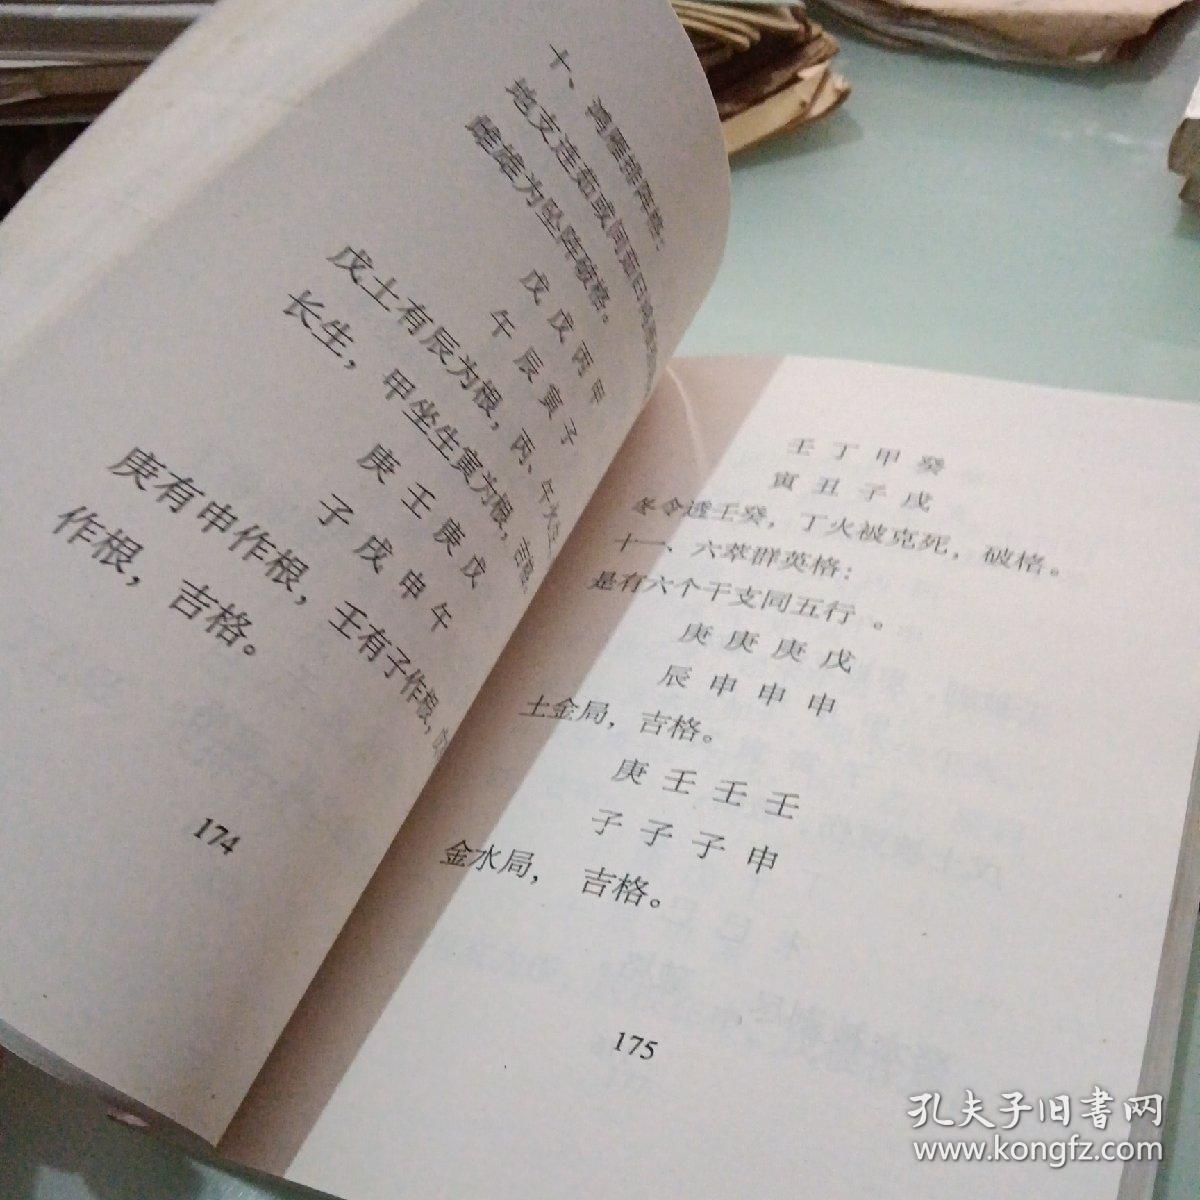 十、鸿雁排阵格：
地支连茹或间茹曰鸿雁
雌雄为坠阵破格。
戊戊丙甲
午辰寅子
戊土有辰为根，丙、午火
长生，甲坐生寅为根，吉格。
庚壬庚戊
子戌申午
庚有申作根，壬有子作根，
作根，吉格。
174
壬丁甲癸
寅丑子戌
冬令透壬癸，丁火被克死，破格。
十一、六萃群英格：
是有六个干支同五行。
庚庚庚戊
辰申申申
土金局，吉格。
庚壬壬壬
子子子申
金水局， 吉格。
175
孔夫子旧书网
www.kongfz.com